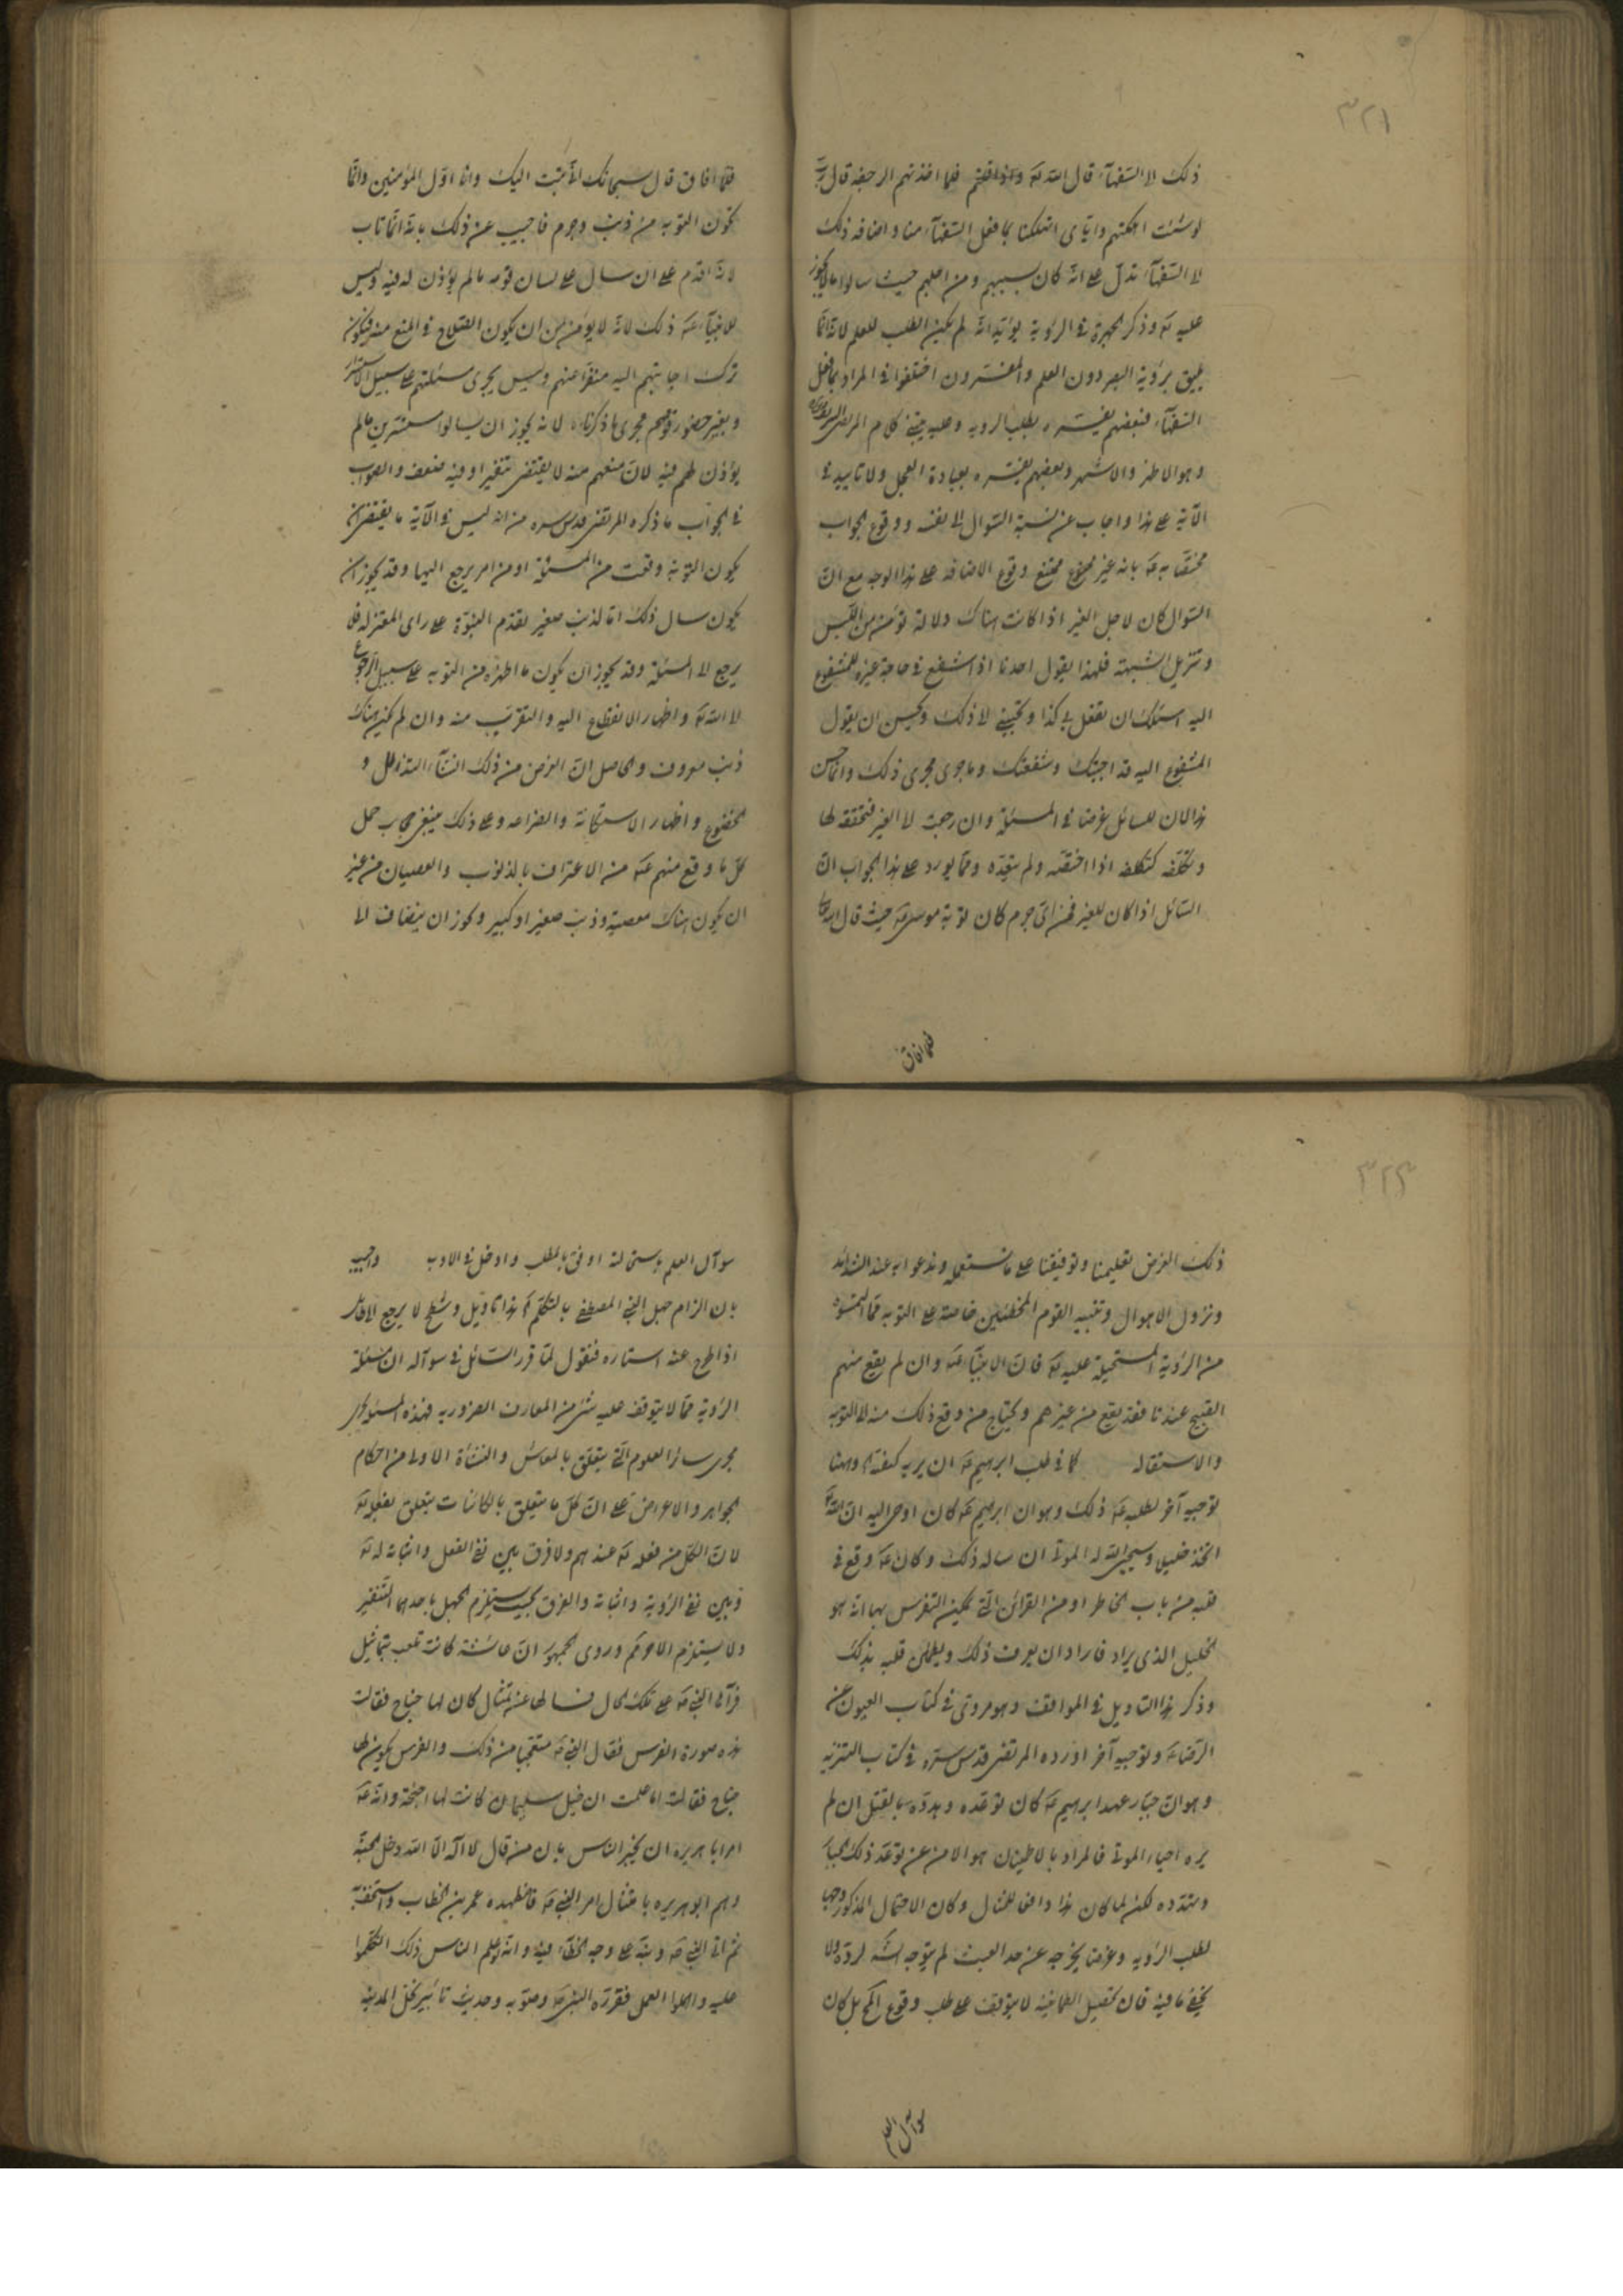 ٣٢١
ذلك الى السفهاء قال الله تعالى فلما اخذتهم الرجفة قال رب
لو شئت اهلكتهم واياى اتهلكنا بما فعل السفهاء منا واضافة ذلك
الى السفهاء تدل على انه كان بسببهم ومن اجلهم حيث سالوا ما لا يجوز
عليه تع وذكر الجهرة فى الرؤية يؤيد انه لم يكن الطلب للعلم لانه انما
يليق برؤية البصر دون العلم والمفسرون اختلفوا فى المراد بما فعل
السفهاء فبعضهم يفسره بطلب الروية وعليه يبتنى كلام المرتضى
وهو الاظهر والاشهر وبعضهم يفسره بعبادة العجل ولا تاييد فى
الآية على هذا واجاب عن نسبة السوال الى نفسه ووقوع الجواب
مختصا به ع بانه غير ممتنع وقوع الاضافة على هذا الوجه مع ان
السوال كان لاجل الغير اذا كانت هناك دلالة تؤمن من اللبس
وتزيل الشبهة فلهذا يقول احدنا اذا شفع فى حاجة غيره للمشفوع
اليه اسئلك ان تفعل بى كذا وتجيبنى الى ذلك ويحسن ان يقول
المشفوع اليه قد اجبتك وشفعتك وما جرى مجرى ذلك وانما حسن
هذا لان للسائل غرضا فى المسئلة وان رجعت الى الغير فتحققه لها
وتكلفه كتكلفه اذا اختصه ولم يتعده ومما يورد على هذا الجواب ان
السائل اذا كان للغير فمن اى جرم كان توبة موسى ع حيث قال
فلما افاق
فلما افاق قال سبحانك انى تبت اليك وانا اول المؤمنين وانما
تكون التوبة من ذنب وجرم فاجيب عن ذلك بانه انما تاب
لانه اقدم على ان سال على لسان قومه ما لم يؤذن له فيه وليس
للانبياء ع ذلك لانه لا يؤمن من ان يكون الصلاح فى المنع منه فيكون
ترك اجابتهم اليه منفرا عنهم وليس يجرى مسئلتهم على سبيل الاستسرار
وبغير حضور قومهم مجرى ما ذكرناه لانه يجوز ان يسالوا مستسرين ما لم
يؤذن لهم فيه لان منعهم منه لا يقتضى تنفيرا وفيه ضعف والصواب
فى الجواب ما ذكره المرتضى قدس سره من انه ليس فى الآية ما يقتضى ان
يكون التوبة وقعت من المسئلة او من امر يرجع اليها وقد يجوز ان
يكون سال ذلك اما لذنب صغير تقدم النبوة على راى المعتزلة فلا
يرجع الى المسئلة وقد يجوز ان يكون ما اظهره من التوبة على سبيل الرجوع
الى الله تع واظهار الانقطاع اليه والتقرب منه وان لم يكن هناك
ذنب معروف والحاصل ان الغرض من ذلك انشاء التذلل و
الخضوع واظهار الاستكانة والضراعة وعلى ذلك ينبغى حمل
كل ما وقع منهم ع من الاعتراف بالذنوب والعصيان من غير
ان يكون هناك معصية وذنب صغير او كبير ويجوز ان ينضاف الى
٣٢٣
ذلك الغرض تعليمنا وتوفيقنا على ما نستعمله وندعو به عند الشدائد
ونزول الاهوال وتنبيه القوم المخطئين خاصة على التوبة مما التمسوه
من الرؤية المستحيلة عليه تع فان الانبياء ع وان لم يقع منهم
القبيح عندنا فقد يقع من غيرهم ويحتاج من وقع ذلك منه الى التوبة
والاستقالة كما فى طلب ابرهيم ع ان يريه كيفية وههنا
توجيه آخر لطلبه ع ذلك وهو ان ابرهيم ع كان اوحى اليه ان الله
اتخذ خليلا وسيحيى الله له الموتى ان ساله ذلك وكان ع وقع فى
قلبه من باب الخاطر او من القرائن التى يمكن التفرس بها انه هو
الخليل الذى يراد فاراد ان يعرف ذلك ويطمئن قلبه بذلك
وذكر هذا التاويل فى المواقف وهو مروى فى كتاب العيون عن
الرضا ع وتوجيه آخر اورده المرتضى قدس سره فى كتاب التنزيه
وهو ان جبار عهد ابرهيم ع كان توعده وهدده بالقتل ان لم
يره احياء الموتى فالمراد بالاطمينان هو الامن عن توعد ذلك الجبار
وتهدده لكن لما كان هذا دافعا للمثال وكان الاحتمال المذكور وجها
لطلب الرؤية وغرضا يخرجه عن حد العبث لم يتوجه لرده ولا
يخفى ما فيه فان تحصيل الطمانينة لا يتوقف على طلب وقوع المح بل كان
سوآل العلم
سوآل العلم باستحالته اوفى بالمطلب وادخل فى الادب واجيب
بان الزام جهل النبى المصطفى بالتكلم كم هذا تاويل وشطح لا يرجع الى
اذا طرح عنه استاره فنقول لما قرر السائل فى سوآله ان مسئلة
الرؤية مما لا يتوقف عليه شئ من المعارف الضرورية فهذه المسئلة تجرى
مجرى سائر العلوم التى يتعلق بالمعاش والنشاة الاولى من احكام
الجواهر والاعراض على ان كل ما يتعلق بالكائنات يتعلق بفعله تع
لان الكل من فعله تع عندهم ولا فرق بين نفى الفعل واثباته له تع
وبين نفى الرؤية واثباته والفرق بحيث يستلزم الجهل باحدهما التنفير
ولا يستلزم الآخر تحكم وروى الجمهور ان عائشة كانت تلعب بتماثيل
فرآها النبى ص على تلك الحال فسالها عن تمثال كان لها جناح فقالت
هذه صورة الفرس فقال النبى ص متعجبا من ذلك والفرس يكون لها
جناح فقالت اما علمت ان خيل سليمان كانت لها اجنحة وانه ع
امر ابا هريرة ان يخبر الناس بان من قال لا اله الا الله دخل الجنة
وهم ابو هريرة بامتثال امر النبى ص عمر بن الخطاب واستخف به
ثم اتى النبى ص ونبه على وجه الخطاء فيه وانه لو علم الناس ذلك اتكلوا
عليه واهملوا العمل فقرره النبى ص وصوبه وحديث تابير نخل المدينة